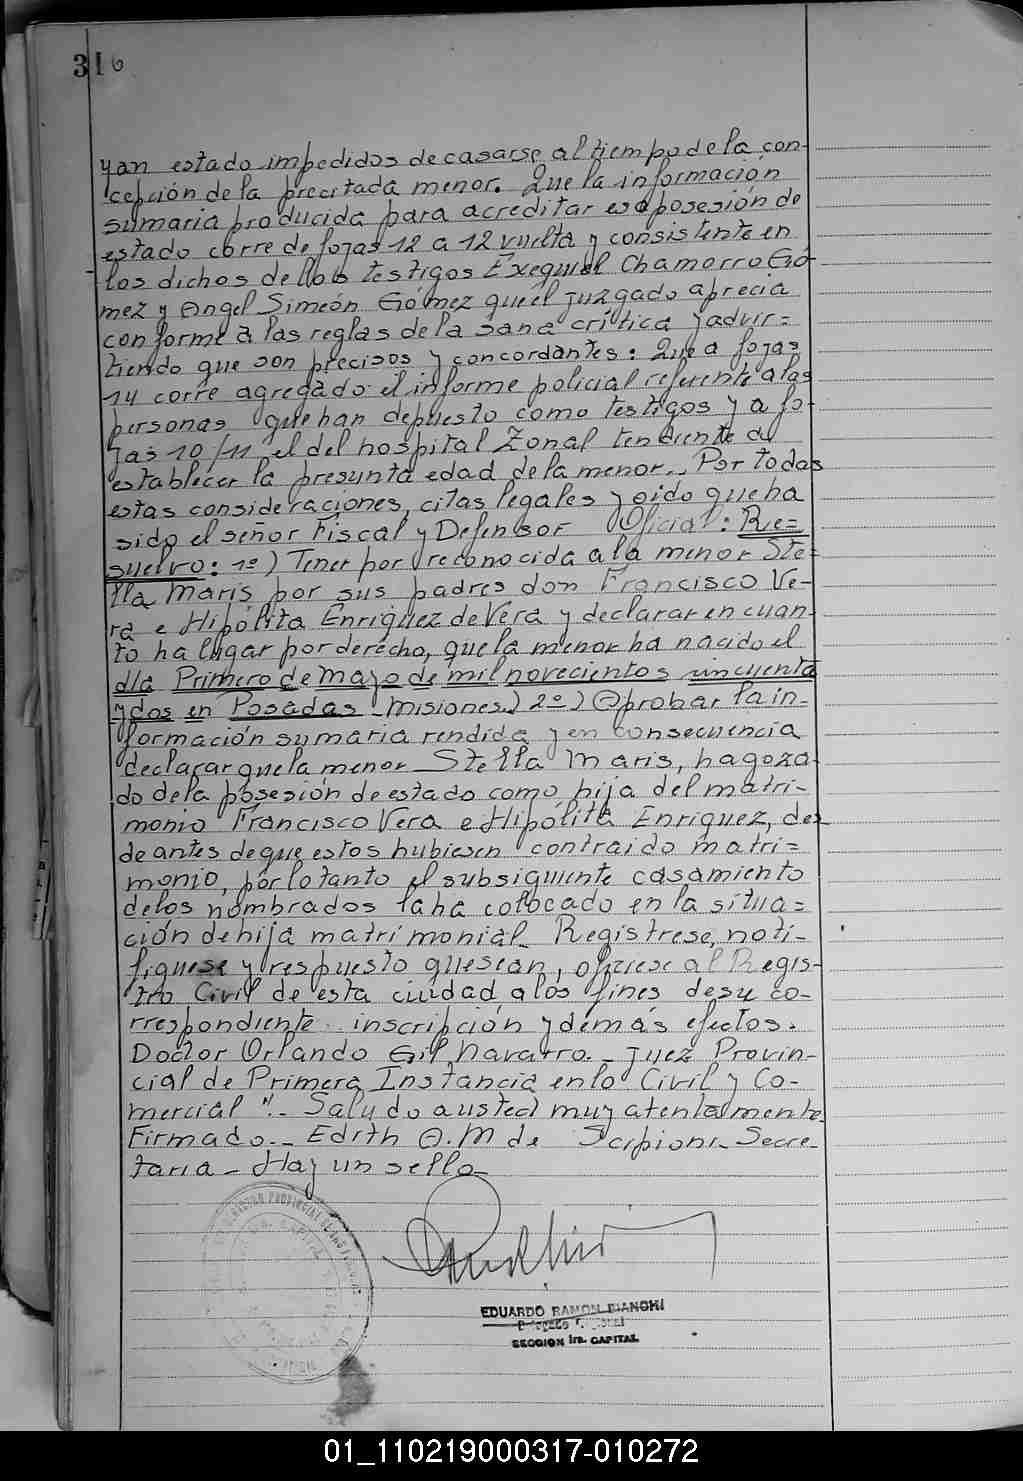 316
yan estado impedidos de casarse al tiempo de la con-
cepción de la precitada menor. Que la información
sumaria producida para acreditar esa posesión de
estado corre de fojas 12 a 12 vuelta y consistente en
los dichos de llos testigos Exequiel Chamorro Gó-
mez y Angel Simeón Gómez que él juzgado aprecia
conforme a las reglas de la sana crítica y advir=
tiendo que son precisos y concordantes: Que a fojas
14 corre agregado el informe policial referente a las
personas que han depuesto como testigos y a fo-
jas 10/11 el del hospital Zonal tendiente a
establecer la presunta edad de la menor.. Por todas
estas consideraciones, citas legales y oido que ha
sido el señor Fiscal y Defensor Oficial: Re=
suelvo: 1º) Tener por reconocida a la menor Ste=
lla Maris por sus padres don Francisco Ve-
ra e Hipólita Enriquez de Vera y declarar en cuan-
to ha lugar por derécho, que la menor ha nacido el
día Primero de Mayo de mil novecientos cincuenta
y dos en Posadas - Misiones.) 2º) Aprobar la in-
formación sumaria rendida y en consecuencia
declarar que la menor Stella Maris, ha goza-
do de la posesión de estado como hija del matri-
monio Francisco Vera e Hipólita Enriquez, des-
de antes de que estos hubiesen contraido matri=
monio, por lo tanto el subsiguiente casamiento
de los nombrados la ha colocado en la situa=
ción de hija matrimonial. Registrese, noti-
fiquese y respuesto que sean, oficiese al Regis-
tro Civil de esta ciudad a los fines de su co-
rrespondiente inscripción y demás efectos.
Doctor Orlando Gil Navarro.- Juez Provin-
cial de Primera Instancia en lo Civil y Co-
mercial".- Saludo a usted muy atentamente
Firmado.- Edith A. M de Scipioni- Secre-
taria - Hay un sello-
EDUARDO RAMON BIANCHI
SECCION 1ra. CAPITAL
01_110219000317-010272